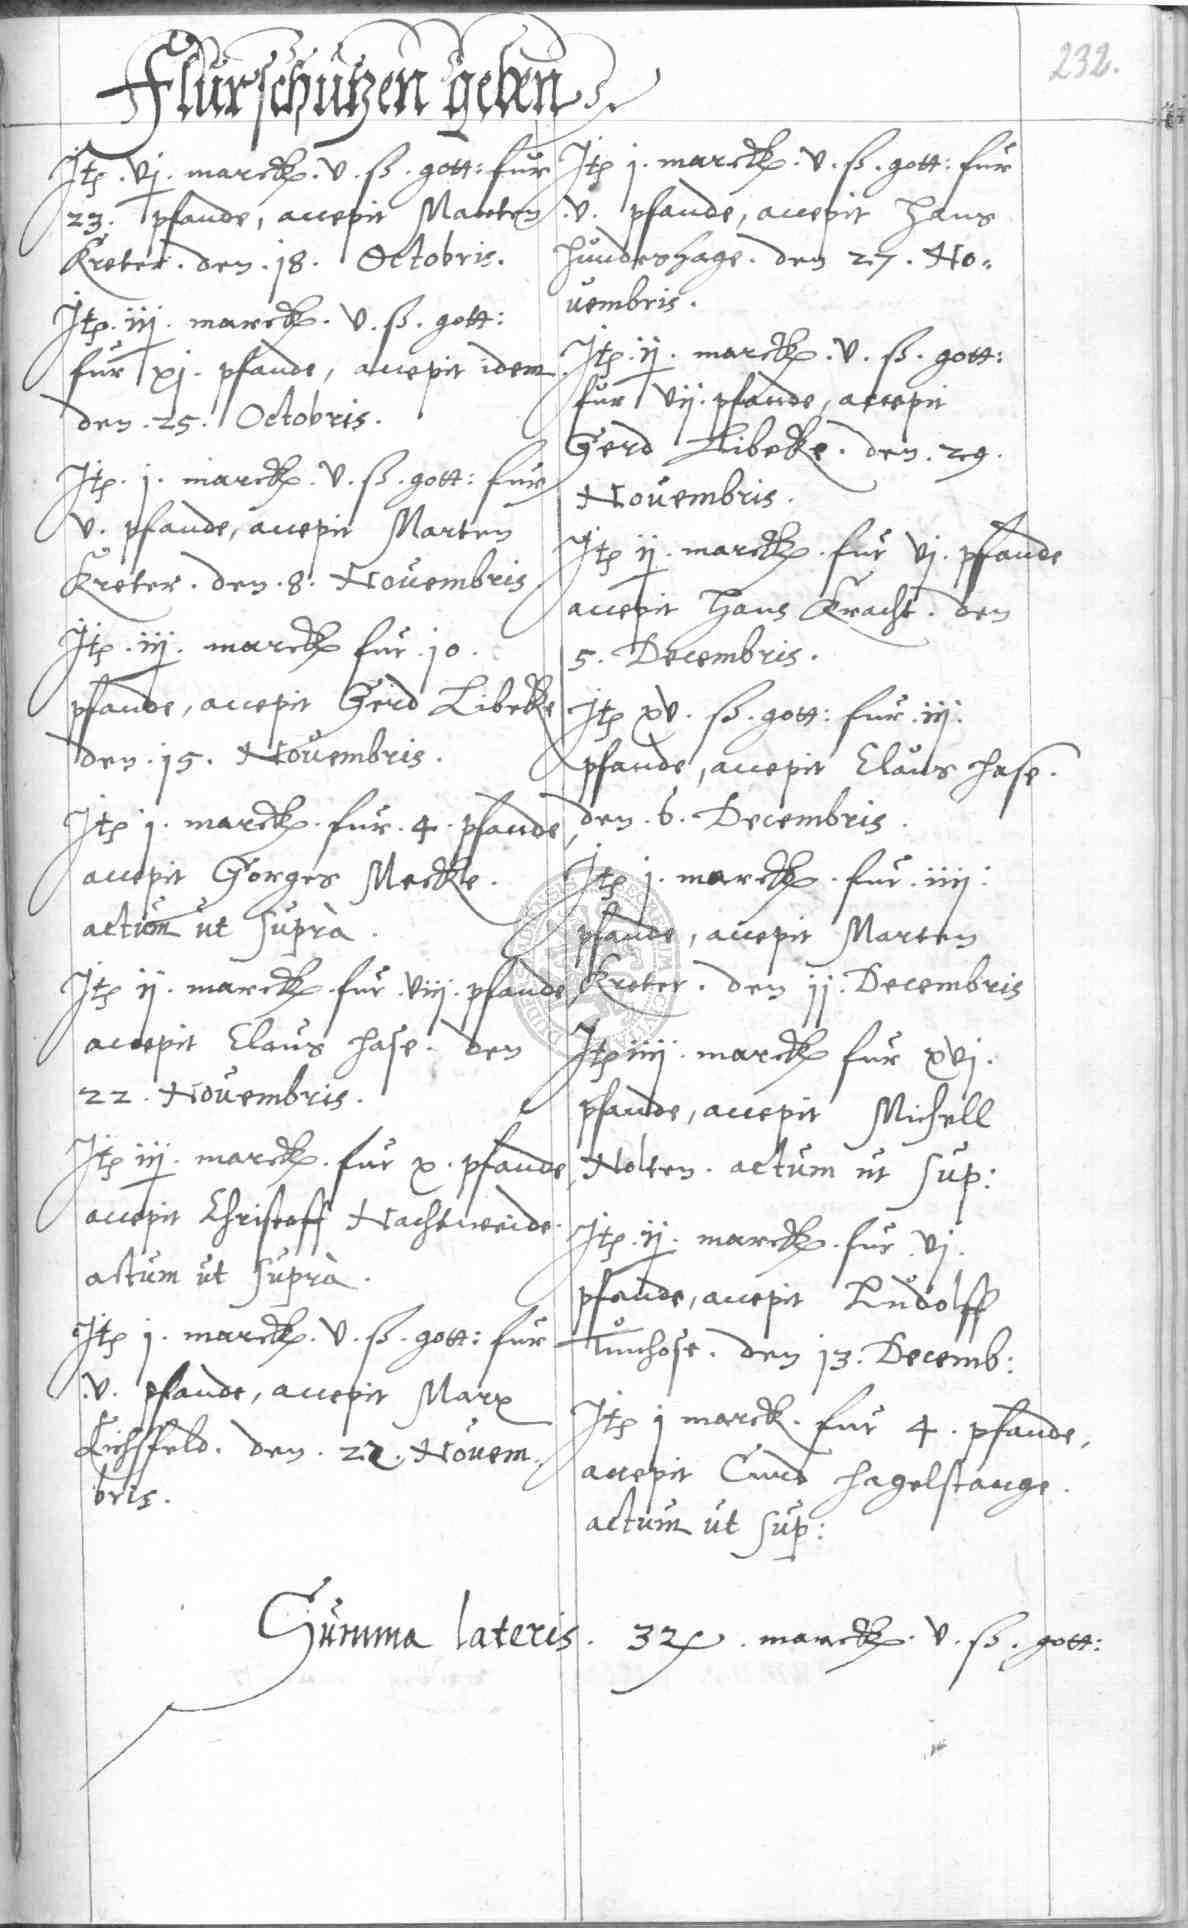 232.
Flurschutzen geben
Itp. vj. marck. v. ß. gott: fur
23. pfande, accepit Marten
Kreter. den. 18. Octobris.
Itp. iij. marck. v. ß. gott:
fur xj. pfande, accepit idem
den. 25. Octobris.
Itp. j. marck. v. ß. gott: fur
v. pfande, accepit Marten
Kreter. den. 8. Novembris
Itp. iij. marck fur. 10.
pfande, accepit Gerd Libeke
den. 15. Novembris.
Itp j. marck. fur. 4. pfande,
accepit Gorges Meckke.
actum ut suprà.
Itp ij. marck. fur. viij. pfande
accepit Claus Hase. den
22. Novembris.
Itp iij. marck. fur x. pfande,
accepit Christoff Nachtweide.
actum ut suprà.
Itp j. marck. v. ß. gott: fur
.v. pfande, accepit Marx
Eichsfeld. den. 22. Novem.
bris.
Itp j. marck. v. ß. gott: fur
.v. pfande, accepit Hans
Hundeshage. den 27. No=
vembris.
Itp. ij. marck. v. ß. gott:
fur vij. pfande, accepit
Gerd Libeke. den. 29.
Novembris.
Itp ij. marck. fur vj. pfande
accepit Hans Kracht. den
5. Decembris.
Itp xv. ß. gott: fur. iij.
pfande, accepit Claus Hase.
den. 6. Decembris.
Itp j. marck. fur. iiij:
pfande, accepit Marten
Kreter. den 11. Decembris
Itp iiij. marck fur xvj.
pfande, accepit Michell
Nolten. actum ut sup:
Itp. ij. marck. fur vj.
pfande, accepit Ludolff
Tunhose. den 13. Decemb:
Itp j marck. fur 4. pfande,
accepit Curd Hagelstange.
actum ut sup:
Summa lateris. 32. marck. v. ß. gott: